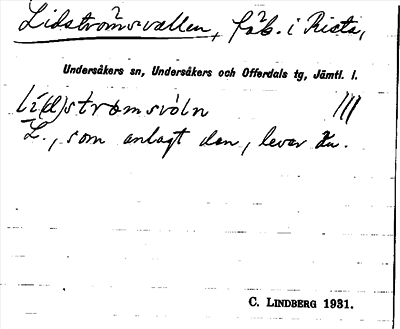 Lidströmsvallen, fäb. i Rista,
Undersåkers sn, Undersåkers och Offerdals tg, Jämtl. l.
li(d)strömsvòln ///
L., som anlagt den, lever än.
C. LINDBERG 1931.